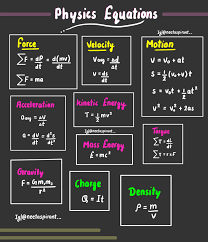 Physics Equations
Ig/@neetaspirant_
Force
ΣF = dP/dt = d(mv)/dt
ΣF = ma
Velocity
Vavg = Δd/Δt
v = ds/dt
Motion
v = v₀ + at
S = ½(v₀+v)t
S = v₀t + ½at²
v² = v₀² + 2as
Acceleration
aavg = ΔV/Δt
a = dv/dt = d²s/dt²
Kinetic Energy
T = ½mv²
Ig/@neetaspirant_
Mass Energy
E = mc²
Torque
Gravity
F = Gm₁m₂/r²
Charge
Q = It
Density
ρ = m/v
Ig/@neetaspirant_